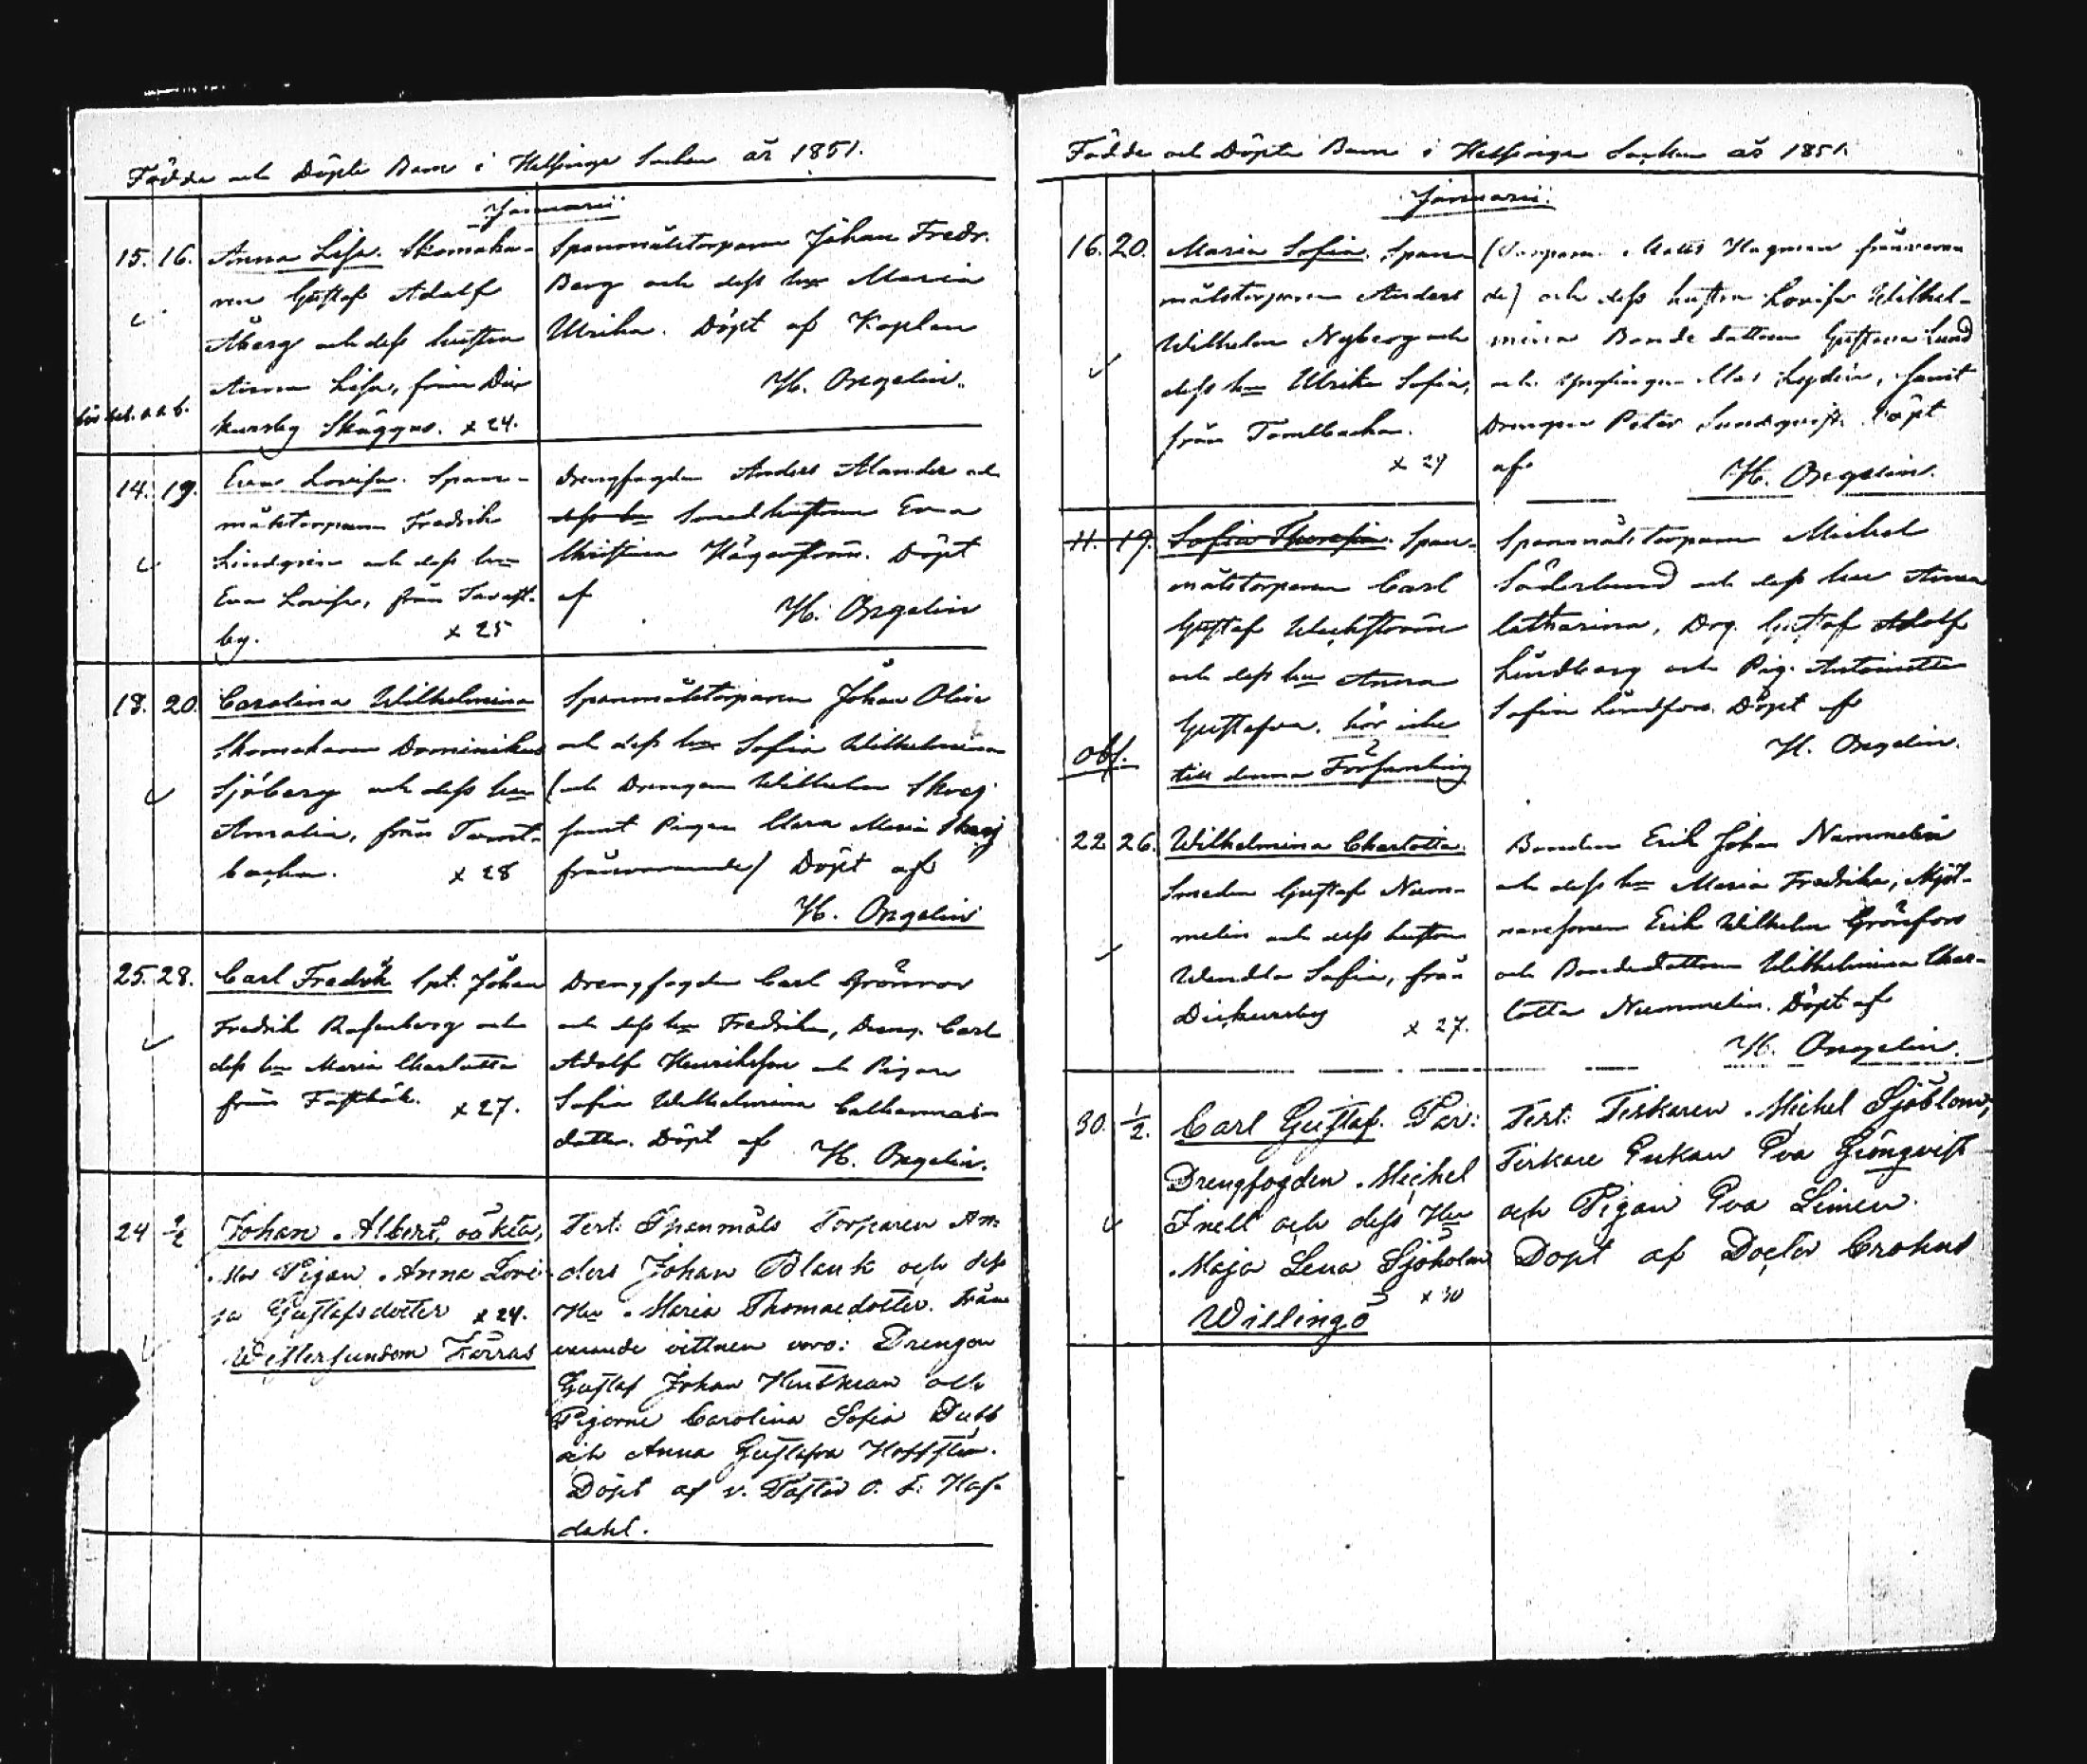 Födde och Döpte Barn i Helsinge Socken år 1851.
Januarii
15. 16. Anna Lisa. Skomaka-
ren Gustaf Adolf
Åberg och dess hustru
Anna Lisa, från Dix
kursby Skäggus. x 24.
Spanmålstorparen Johan Fredr.
Berg och dess hu Maria
Ulrika. Döpt af Kaplan
H. Ongelin.
14. 19. Eva Lovisa. Span-
målstorparen Fredrik
Lindgrén och dess hu
Eva Lovisa, från Tavast-
by. x 25
Drengfogden Anders Alander och
dess hu Smedhustrun Eva
Christina Hägerström. Döpt
af H. Ongelin
18. 20. Carolina Wilhelmina
Skomakaren Dominikus
Sjöberg och dess hu
Amalia, från Tomt-
backa. x 28
Spanmålstorparen Johan Olin
och dess hu Sofia Wilhelmina
(och Drengen Wilhelm Skog
samt Pigan Clara Maria Skog
frånvarande) Döpt af
H. Ongelin
25. 28. Carl Fredrik Spt. Johan
Fredrik Rosenberg och
dess hu Maria Charlotta
från Fastböle. x 27.
Drengfogden Carl Grönroos
och dess hu Fredrika, Dreng. Carl
Adolf Henriksson och Pigan
Sofia Wilhelmina
dotter. Döpt af H. Ongelin.
24 2/2 Johan Albert, oäkta,
Mor Pigan Anna Lovi-
sa Gustafsdotter x 24.
Westersundom Karras
Test: Spanmåls Torparen An-
ders Johan Blank och dess
Hu Maria Thomasdotter. Från
varande vittnen voro: Drengen
Gustaf Johan Hutman och
Pigorne Carolina Sofia Dubb
och Anna Gustafva Hoffstén.
Döpt af v. Pastor O. E. Haf-
dahl.
Födde och Döpte Barn i Helsinge Socken år 1851.
Januarii.
16. 20. Maria Sofia. Span
målstorparen Anders
Wilhelm Nyberg och
dess hu Ulrika Sofia,
från Tomtbacka.
x 29
(Torparen Matts Hagman frånvaran
de) och dess hustru Lovisa Wilhel-
mina Bonde dottren Gustava Lund
och Clas Lydén, samt
Drengen Peter Sundqvist. Döpt
af H. Ongelin.
11. 19. Sofia Theresia. Span-
målstorparen Carl
Gustaf Weckström
och dess hu Anna
Gustafva. hör icke
obs. till denna Församling
Spanmålstorparen Michel
Söderlund och dess hu Anna
Catharina, Drg. Gustaf Adolf
Lindberg och Pig. Antoinette
Sofia Lindfors. Döpt af
H. Ongelin.
22. 26. Wilhelmina Charlotta.
Smeden Gustaf Num-
melin och dess hustru
Wendla Sofia, från
Dickursby x 27.
Bonden Erik Johan Nummelin
och dess hu Maria Fredrika, Mjöl-
naresonen Erik Wilhelm Grönfors
och Bondedottren Wilhelmina Char-
lotta Nummelin. Döpt af
H. Ongelin.
30. 1/2. Carl Gustaf. Par:
Drengfogden Michel
Snell och dess Hu
Maja Lena Sjöholm
x 30
Willingö
Test: Fiskaren Michel Sjöblom,
Fiskare Enkan Eva Grönqvist
och Pigan Eva Limén.
Döpt af Doctor Crohns